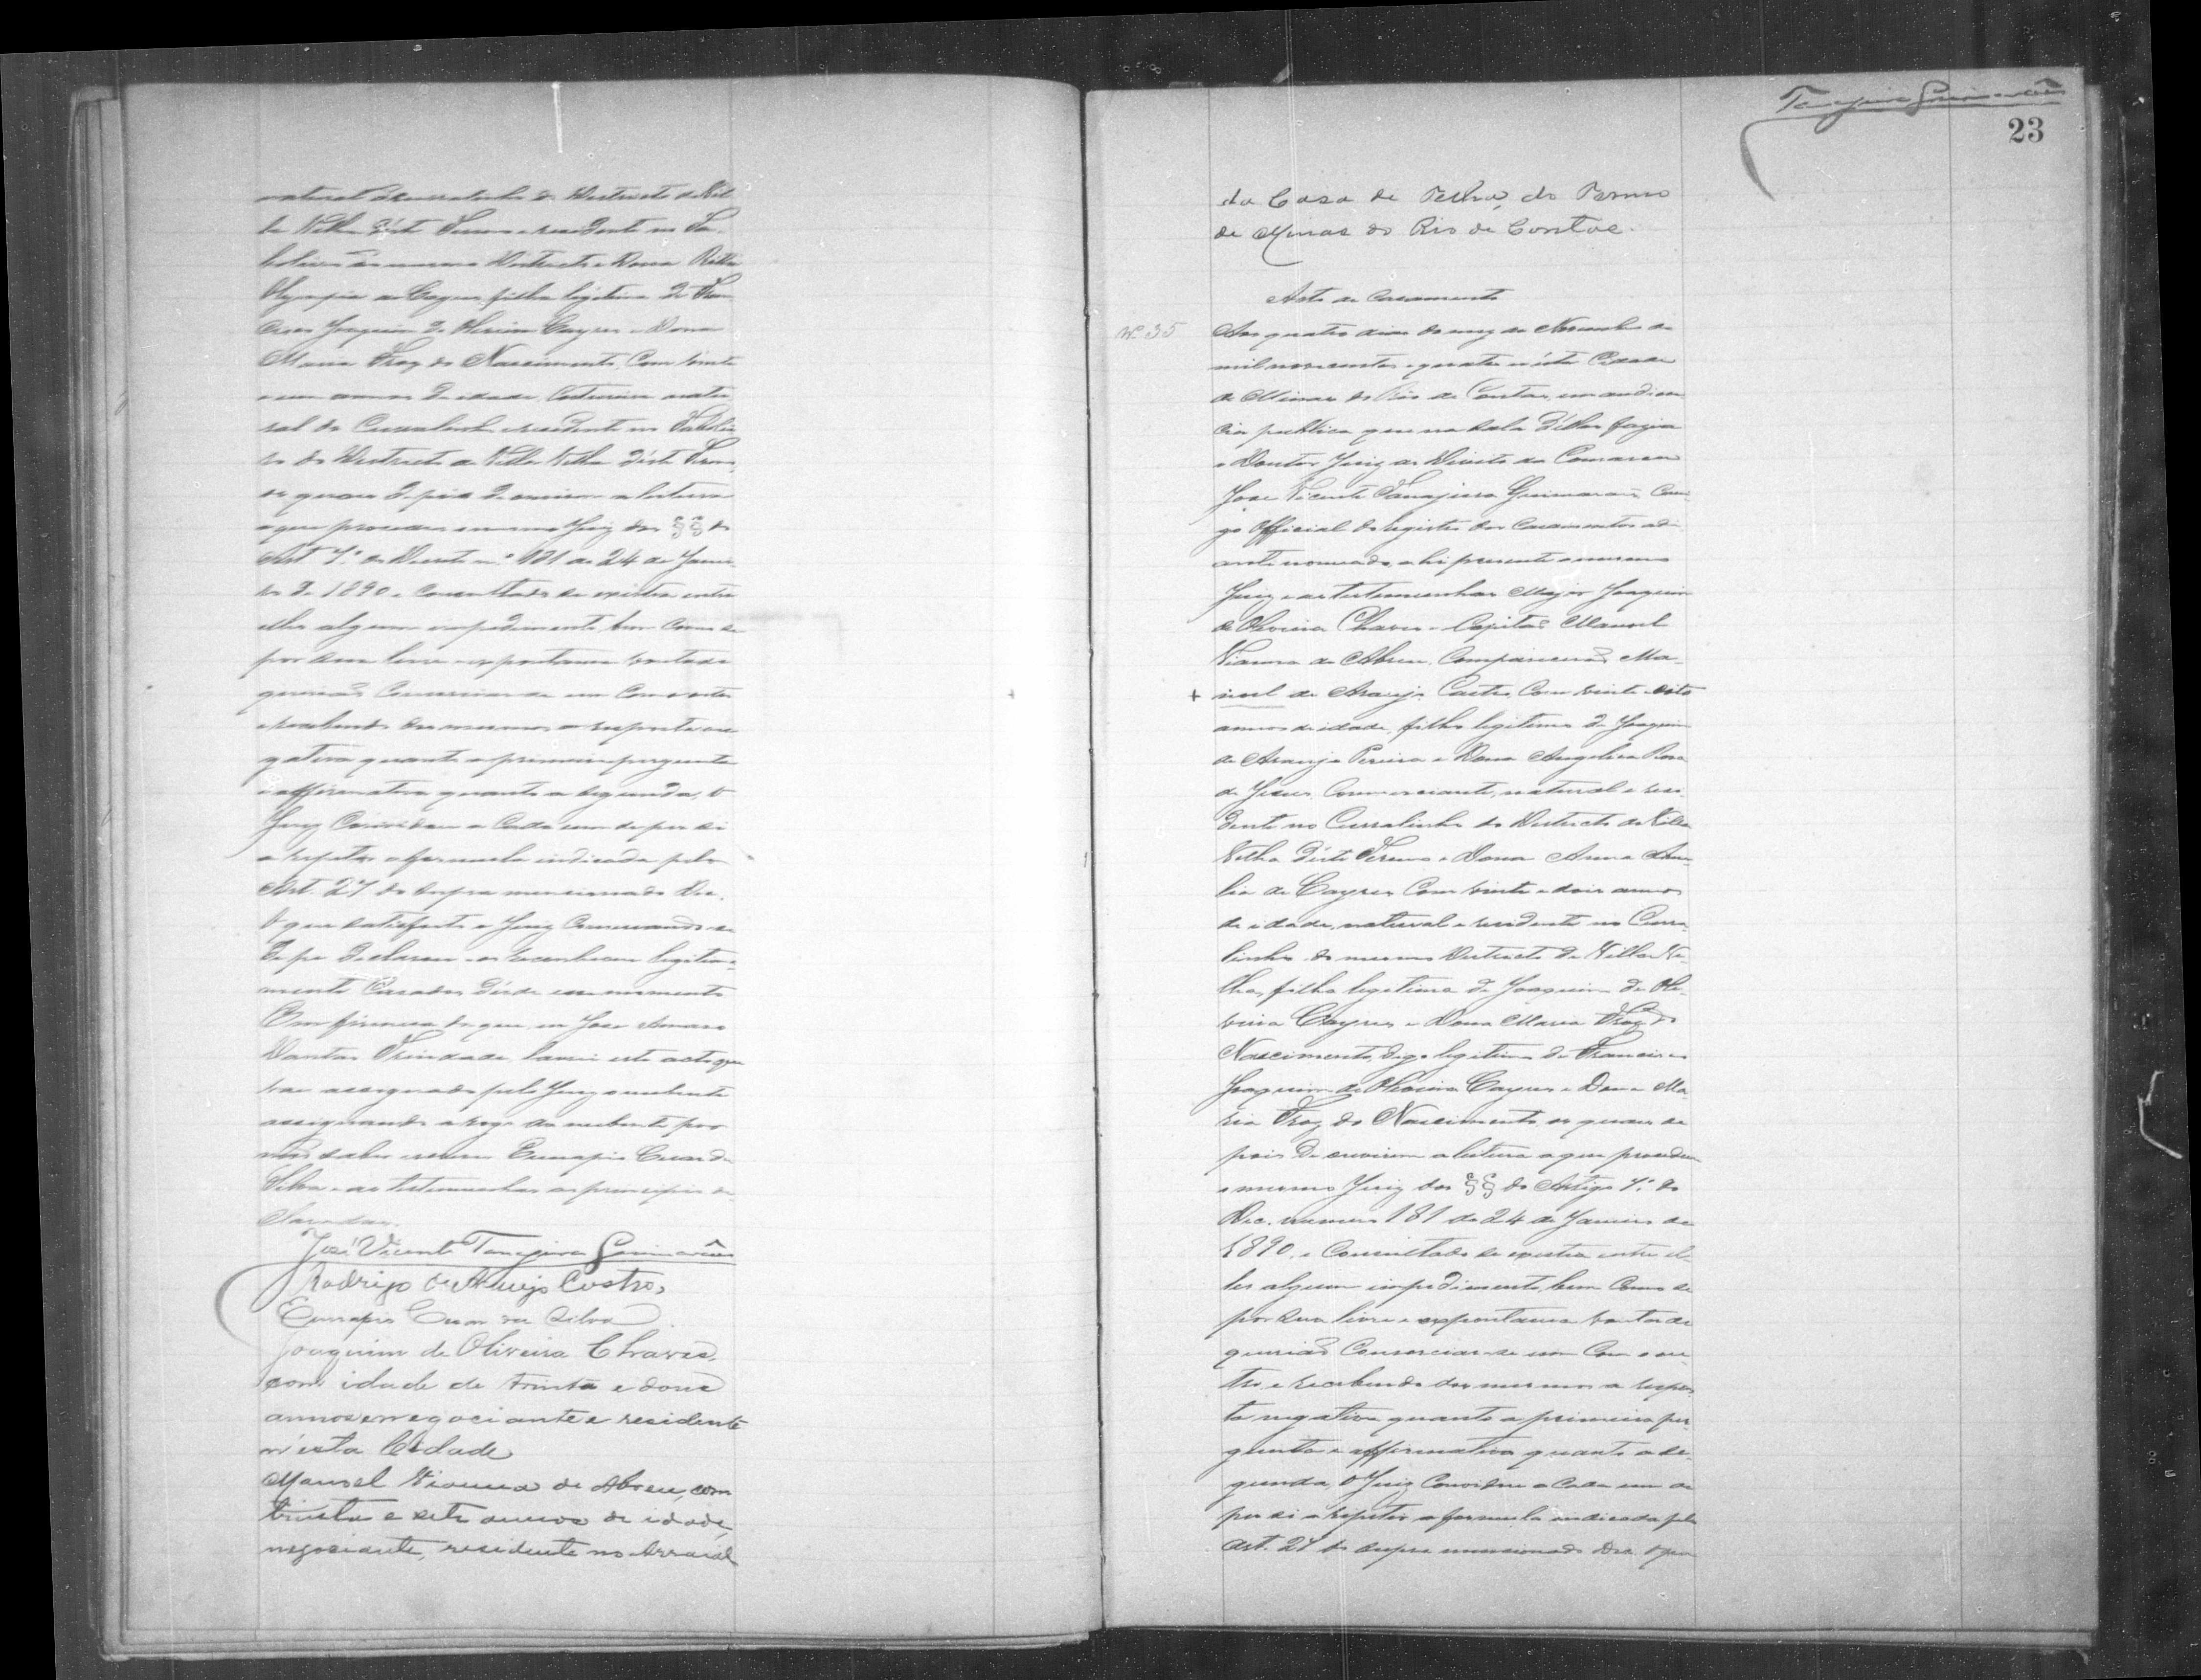 natural do Curralinho do Districto de Vil
la Velha d'este Termo e residente no Ta-
boleiro do mesmo Districto e Dona Ritta
Olympia de Cayres filha legitima de Fran
cisco Joaquim de Oliveira Cayres e Dona
Maria Froz do Nascimento, com vinte
e um annos de idade, costureira natu
ral do Curralinho e residente no Tabolei
ro do Districto de Villa Velha d'este Termo,
os quaes depois de ouvirem a leitura
a que procedeu o mesmo Juiz dos §§ do
Art 7º do Decreto nº 181 de 24 de Janei
ro de 1890 e consultado se existia entre
elles algum impedimento bem como se
por sua livre e espontanea vontade
querião consorciar-se um com o outro
e recebendo dos mesmos a resposta ne
gativa quanto a primeira pergunta
e affirmativa quanto a segunda, o
Juiz convidou a cada um de per si
a repetir a formula indicada pelo
Art. 27 do supra mencionado Dec.
O que satisfeito o Juiz conservando-se
de pé declarou-os e reconheceu legitima-
mente Casados desde esse momento
Em firmeza do que eu José Amaro
Dantas Trindade, lancei este acto que
vae assignado pelo Juiz o nubente
assignando a rogo da nubente por
não saber escrever Eunapio Cesar da
Silva e as testemunhas ao principio de
claradas.
José Vicente Tanajura Guimarães
Rodrigo de Araujo Castro,
Eunapio Cesar da Silva
Joaquim de Oliveira Chaves,
com idade de trinta e dous
annos e negociante e residente
n'esta Cidade
Manoel Vianna de Abreu, com
trinta e sete annos de idade,
negociante, residente no Arraial
Tanajura Guimarães
23
da Casa de Telha, do Termo
de Minas do Rio de Contas.
Acto de Casamento
Nº 35
Aos quatro dias do mez de Novembro de
mil novecentos e quatro n'esta Cidade
de Minas do Rio de Contas, em audien
cia publica que na sala d'ellas fazia
o Doutor Juiz de Direito da Comarca
José Vicente Tanajura Guimarães com
go Official do registro dos casamentos adi
ante nomeado, ahi presente o mesmo
Juiz e as testemunhas Major Joaquim
de Oliveira Chaves e Capitão Manoel
Vianna de Abreu, Comparecerão Ma-
+ noel de Araujo Castro com vinte e oito
annos de idade, filho legitimo de Joaquim
de Araujo Pereira e Dona Angelica Rosa
de Jesus, Commerciante, natural e resi
dente no Curralinho do Districto de Villa
Velha d'este Termo e Dona Anna
lia de Cayres com vinte e dois annos
de idade, natural e residente no Curra
linho do mesmo Districto de Villa Ve-
lha, filha legitima de Joaquim de Oli-
veira Cayres e Dona Maria Froz do
Nascimento, digo legitima de Francisco
Joaquim de Oliveira Cayres e Dona Ma
ria Froz do Nascimento os quaes de
pois de ouvirem a leitura a que procedeu
o mesmo Juiz dos §§ do Artigo 7º do
Dec. numero 181 de 24 de Janeiro de
1890, e Consultado se existia entre el-
les algum impedimento, bem como se
por sua livre e espontanea vontade
querião Consorciar-se um com o ou-
tro e recebendo dos mesmos a respos
ta negativa quanto a primeira per
gunta e affirmativa quanto a se-
gunda, o Juiz convidou a cada um de
per si a repetir a formula indicada pelo
Art. 27 do supra mencionado Dec. O que